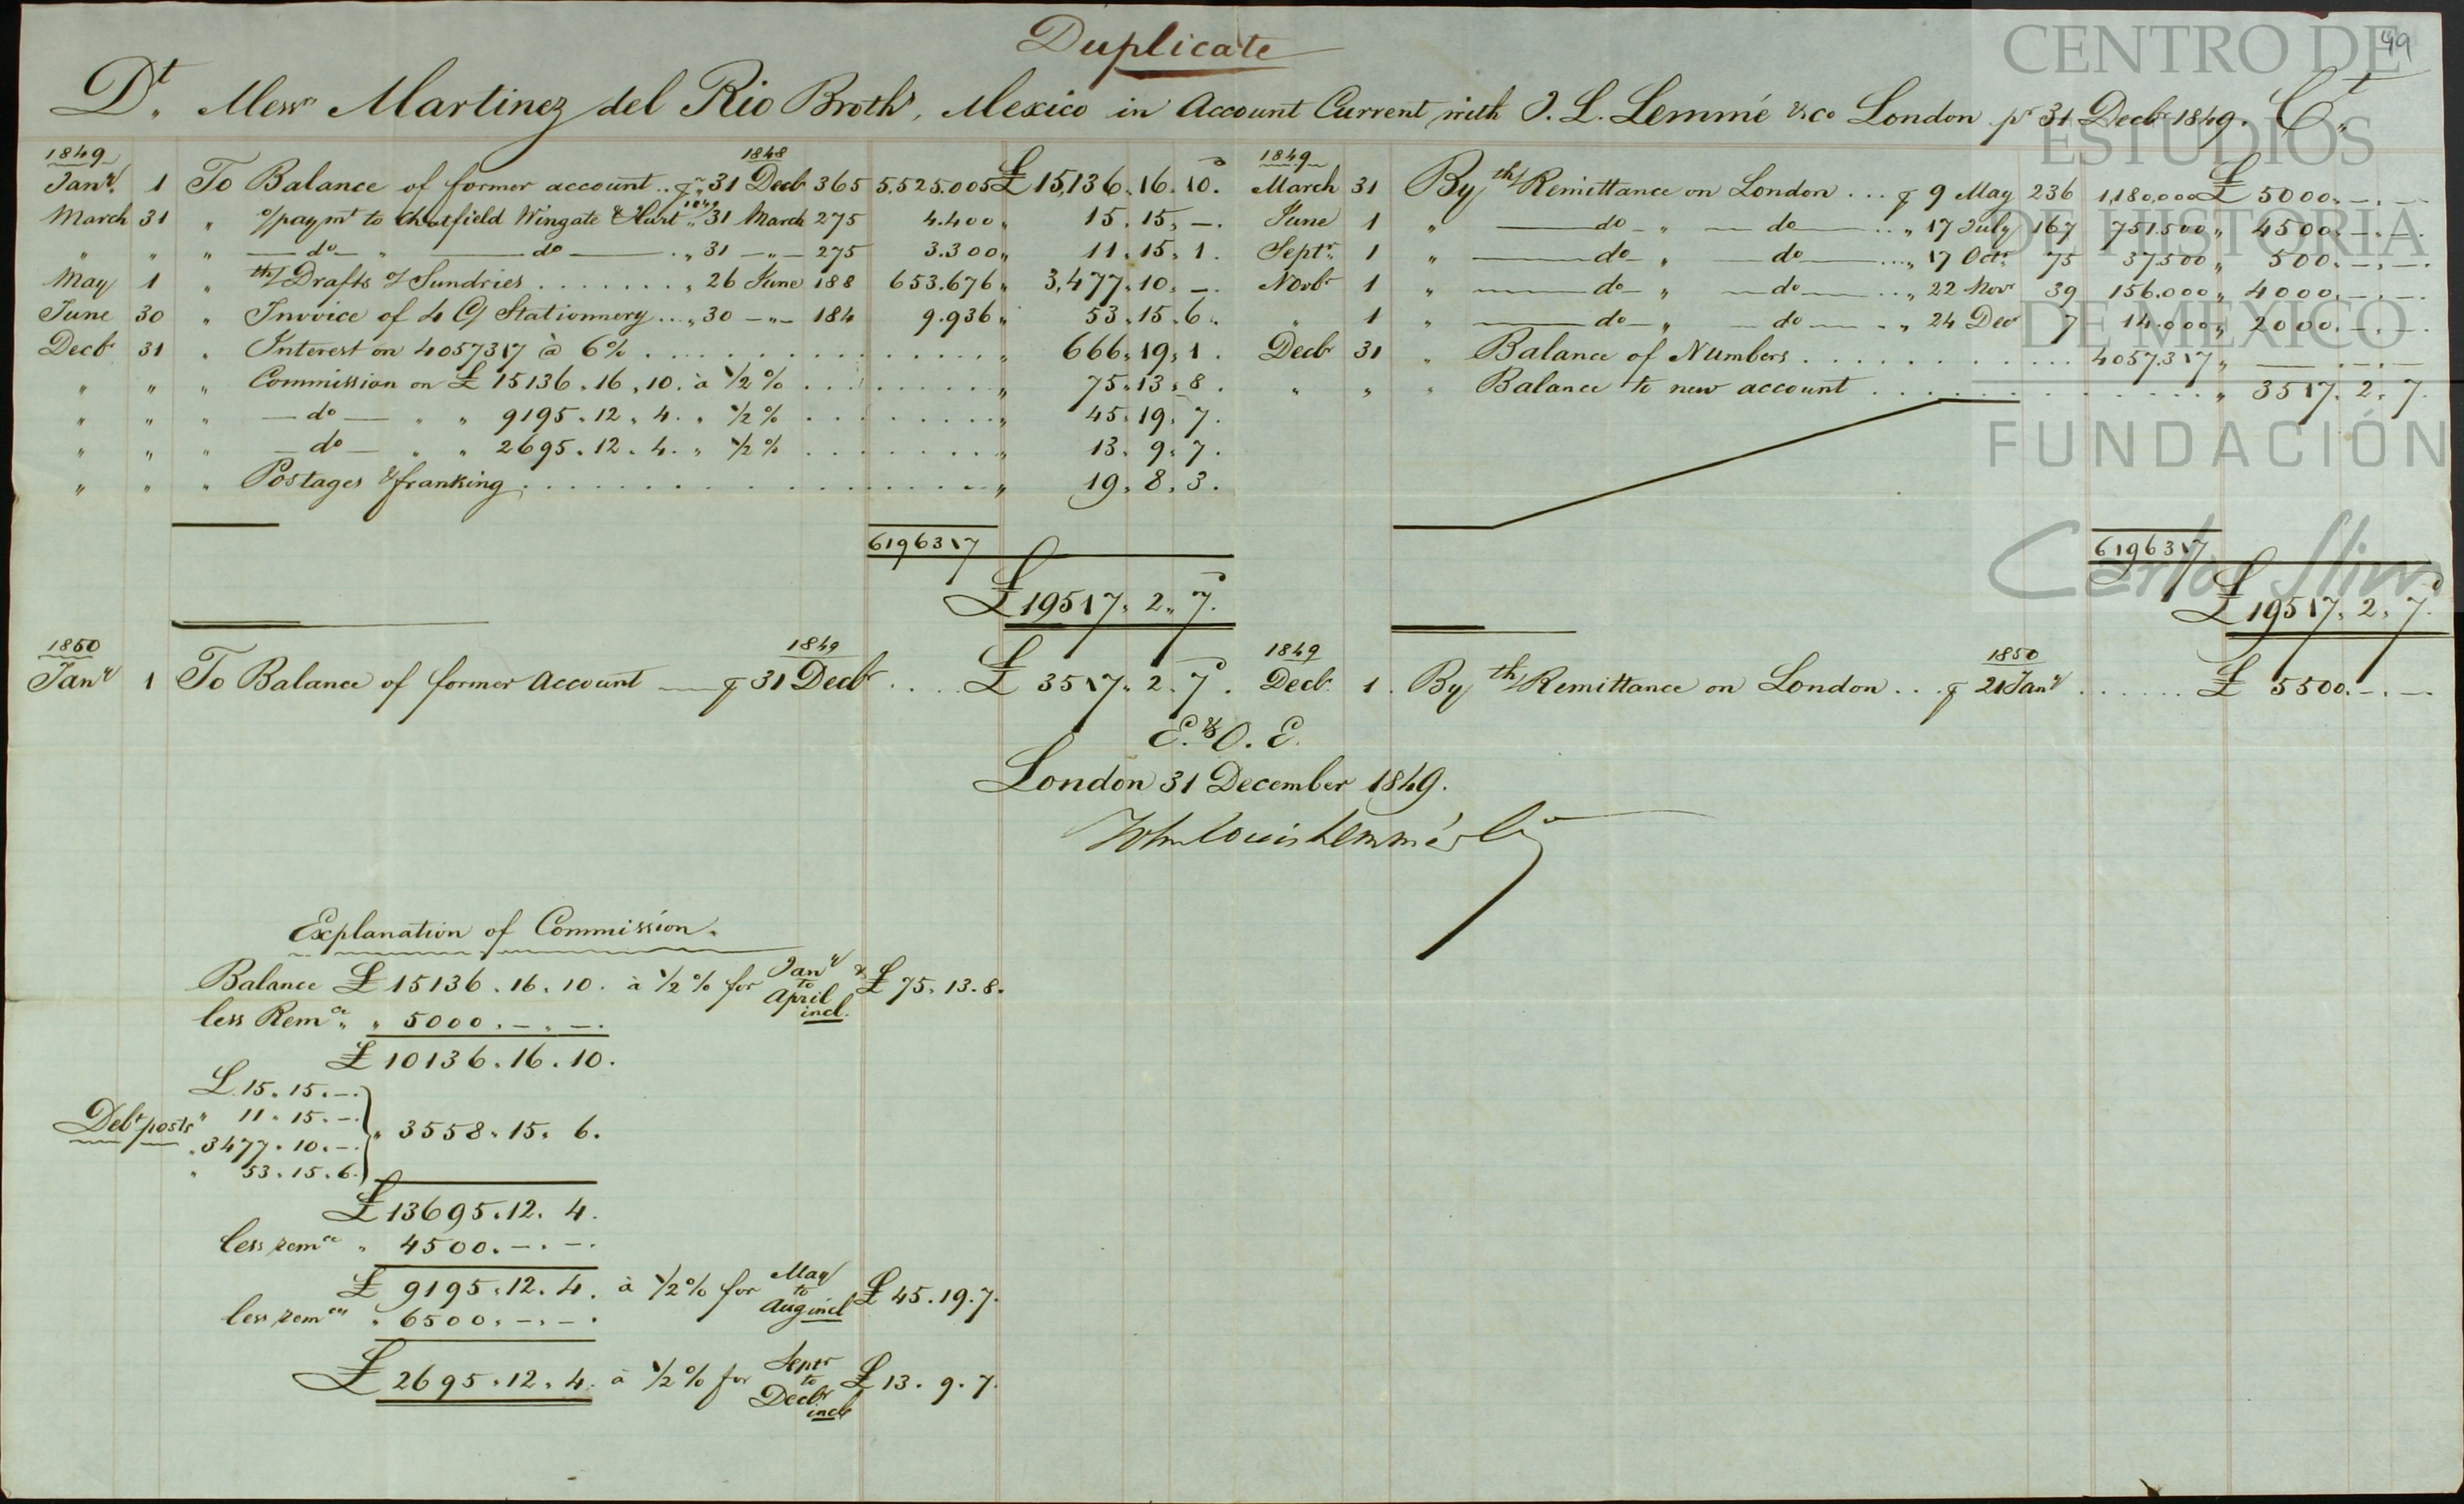 Duplicate
49
Dt. Messrs Martinez del Rio Broths, Mexico in Account Current with J. L. Lemmé & Co London pr 31 Decbr 1849. Ct.
1849 1848 1849
Jany. 1 To Balance of former account .. pr 31 Decb 365 5,525.005 £ 15,136.16.10.
March 31 " o/paymt to Chatfield Wingate & Hart " 1849 31 March 275 4.400 " 15.15.–.
" " " — do — " — do — . " 31 — " — 275 3.300 " 11.15.1.
May 1 " th/ Drafts of Sundries . . . . . . . " 26 June 188 653.676 " 3,477.10.–.
June 30 " Invoice of 4 C/ Stationnery . . . " 30 — " — 184 9.936 " 53.15.6.
Decbr 31 " Interest on 4057317 à 6% . . . . . " 666.19.1.
" " " Commission on £ 15136.16.10. à 1/2 % . . . . . " 75.13.8.
" " " — do — " " 9195.12.4. " 1/2 % . . . . . " 45.19.7.
" " " — do — " " 2695.12.4. " 1/2 % . . . . . " 13.9.7.
" " " Postages & franking . . . . . " 19.8.3.
6196317
£ 19517.2.7.
March 31 By th/ Remittance on London . . . pr 9 May 236 1,180,000 £ 5000.–.–
June 1 " — do — " — do — . . " 17 July 167 751.500 " 4500.–.–.
Septr. 1 " — do " — do — . . . " 17 Octr. 75 37500 " 500.–.–.
Novbr 1 " — do — " — do — . . " 22 Novr 39 156.000 " 4000.–.–
" 1 " — do — " — do — . " 24 Decr 7 14.000 " 2000.–.–.
Decbr 31 " Balance of Numbers . . . . . 4057.317 " — –.–.–
" " " Balance to new account . . . . . " 3517.2.7.
6196317
£ 19517.2.7.
1850 1849
Jany 1 To Balance of former Account — pr 31 Decbr . . . . £ 3517.2.7.
1849 1850
Decb. 1. By th/ Remittance on London . . . pr 21 Jany . . . . . . £ 5500.–.–
E. & O. E.
London 31 December 1849.
John Louis Lemmé & Co
Explanation of Commission.
Balance £ 15136.16.10. à 1/2 % for Jany to April incl. £ 75.13.8.
less Remce. " 5000.–.–.
£ 10136.16.10.
£ 15.15.–.
Debt posts " 11.15.–. " 3558.15.6.
" 3477.10.–.
" 53.15.6.
£ 13695.12.4.
less remce " 4500.–.–.
£ 9195.12.4. à 1/2 % for May to Aug incl £ 45.19.7.
less remces " 6500.–.–.
£ 2695.12.4. à 1/2 % for Septr to Decbr incl £ 13.9.7.
CENTRO DE
ESTUDIOS
DE HISTORIA
DE MÉXICO
FUNDACIÓN
Carlos Slim